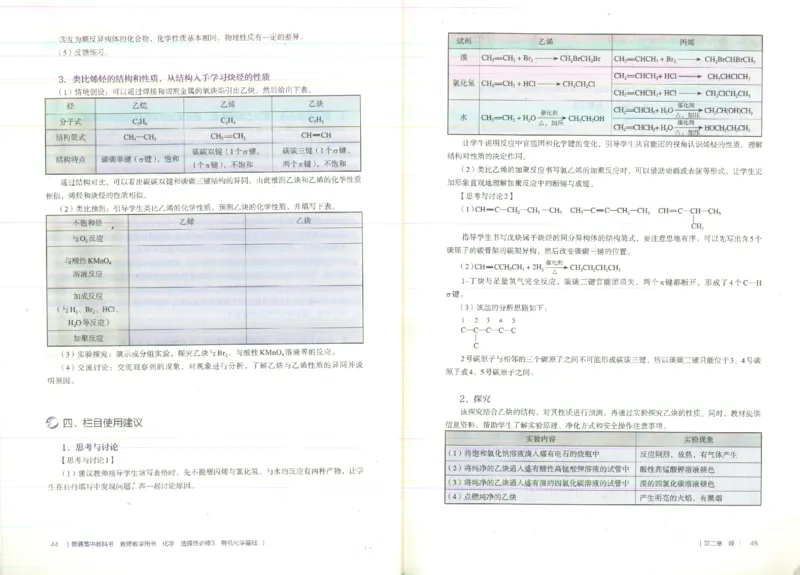 ③互为顺反异构体的化合物，化学性质基本相同，物理性质有一定的差异。
（5）反馈练习。
3．类比烯烃的结构和性质，从结构入手学习炔烃的性质
（1）情境创设：可以通过焊接和切割金属的氧炔焰引出乙炔，然后给出下表。
烃 乙烷 乙烯 乙炔
分子式 C₂H₆ C₂H₄ C₂H₂
结构简式 CH₃—CH₃ CH₂═CH₂ CH≡CH
结构特点 碳碳单键（σ键），饱和 碳碳双键（1个σ键、1个π键），不饱和 碳碳三键（1个σ键、两个π键），不饱和
通过结构对比，可以看出碳碳双键和碳碳三键结构的异同，由此推出乙炔和乙烯的化学性质
相似，烯烃和炔烃的性质相似。
（2）类比预测：引导学生类比乙烯的化学性质，预测乙炔的化学性质，并填写下表。
不饱和烃 乙烯 乙炔
与O₂反应
与酸性KMnO₄
溶液反应
加成反应
（与H₂、Br₂、HCl、
H₂O等反应）
加聚反应
（3）实验探究：演示或分组实验，探究乙炔与Br₂、与酸性KMnO₄溶液等的反应。
（4）交流讨论：交流观察到的现象，对现象进行分析，了解乙炔与乙烯性质的异同并说
明原因。
四、栏目使用建议
1．思考与讨论
【思考与讨论1】
（1）建议教师指导学生填写表格时，先不提醒丙烯与氯化氢、与水的反应有两种产物，让学
生在自行填写中发现问题，再一起讨论原因。
44 | 普通高中教科书 教师教学用书 化学 选择性必修3 有机化学基础 |
试剂 乙烯 丙烯
溴 CH₂═CH₂ + Br₂ ⟶ CH₂BrCH₂Br CH₂═CHCH₃ + Br₂ ⟶ CH₂BrCHBrCH₃
氯化氢 CH₂═CH₂ + HCl ⟶ CH₃CH₂Cl CH₂═CHCH₃ + HCl ⟶ CH₃CHClCH₃
CH₂═CHCH₃ + HCl ⟶ CH₂ClCH₂CH₃
水 CH₂═CH₂ + H₂O 催化剂 △，加压 ⟶ CH₃CH₂OH CH₂═CHCH₃ + H₂O 催化剂 △，加压 ⟶ CH₃CH(OH)CH₃
CH₂═CHCH₃ + H₂O 催化剂 △，加压 ⟶ HOCH₂CH₂CH₃
让学生说明反应中官能团和化学键的变化，引导学生从官能团的视角认识烯烃的性质，理解
结构对性质的决定作用。
（2）类比乙烯的加聚反应书写氯乙烯的加聚反应时，可以借助动画或表演等形式，让学生更
加形象直观地理解加聚反应中的断键与成键。
【思考与讨论2】
（1）CH≡C—CH₂—CH₂—CH₃ CH₃—C≡C—CH₂—CH₃ CH≡C—CH—CH₃
CH₃
指导学生书写戊炔属于炔烃的同分异构体的结构简式，要注意思维有序，可以先写出含5个
碳原子的碳骨架的碳架异构，然后改变碳碳三键的位置。
（2）CH≡CCH₂CH₃ + 2H₂ 催化剂 △ ⟶ CH₃CH₂CH₂CH₃
1-丁炔与足量氢气完全反应，碳碳三键官能团消失，两个π键都断开，形成了4个C—H
σ键。
（3）该题的分析思路如下：
1 2 3 4 5
C—C—C—C—C
C
2号碳原子与相邻的三个碳原子之间不可能形成碳碳三键，所以碳碳三键只能位于3、4号碳
原子或4、5号碳原子之间。
2．探究
该探究结合乙炔的结构，对其性质进行预测，再通过实验探究乙炔的性质。同时，教材提供
信息资料，帮助学生了解实验原理、净化方式和安全操作注意事项。
实验内容 实验现象
（1）将饱和氯化钠溶液滴入盛有电石的烧瓶中 反应剧烈，放热，有气体产生
（2）将纯净的乙炔通入盛有酸性高锰酸钾溶液的试管中 酸性高锰酸钾溶液褪色
（3）将纯净的乙炔通入盛有溴的四氯化碳溶液的试管中 溴的四氯化碳溶液褪色
（4）点燃纯净的乙炔 产生明亮的火焰，有黑烟
| 第二章 烃 | 45